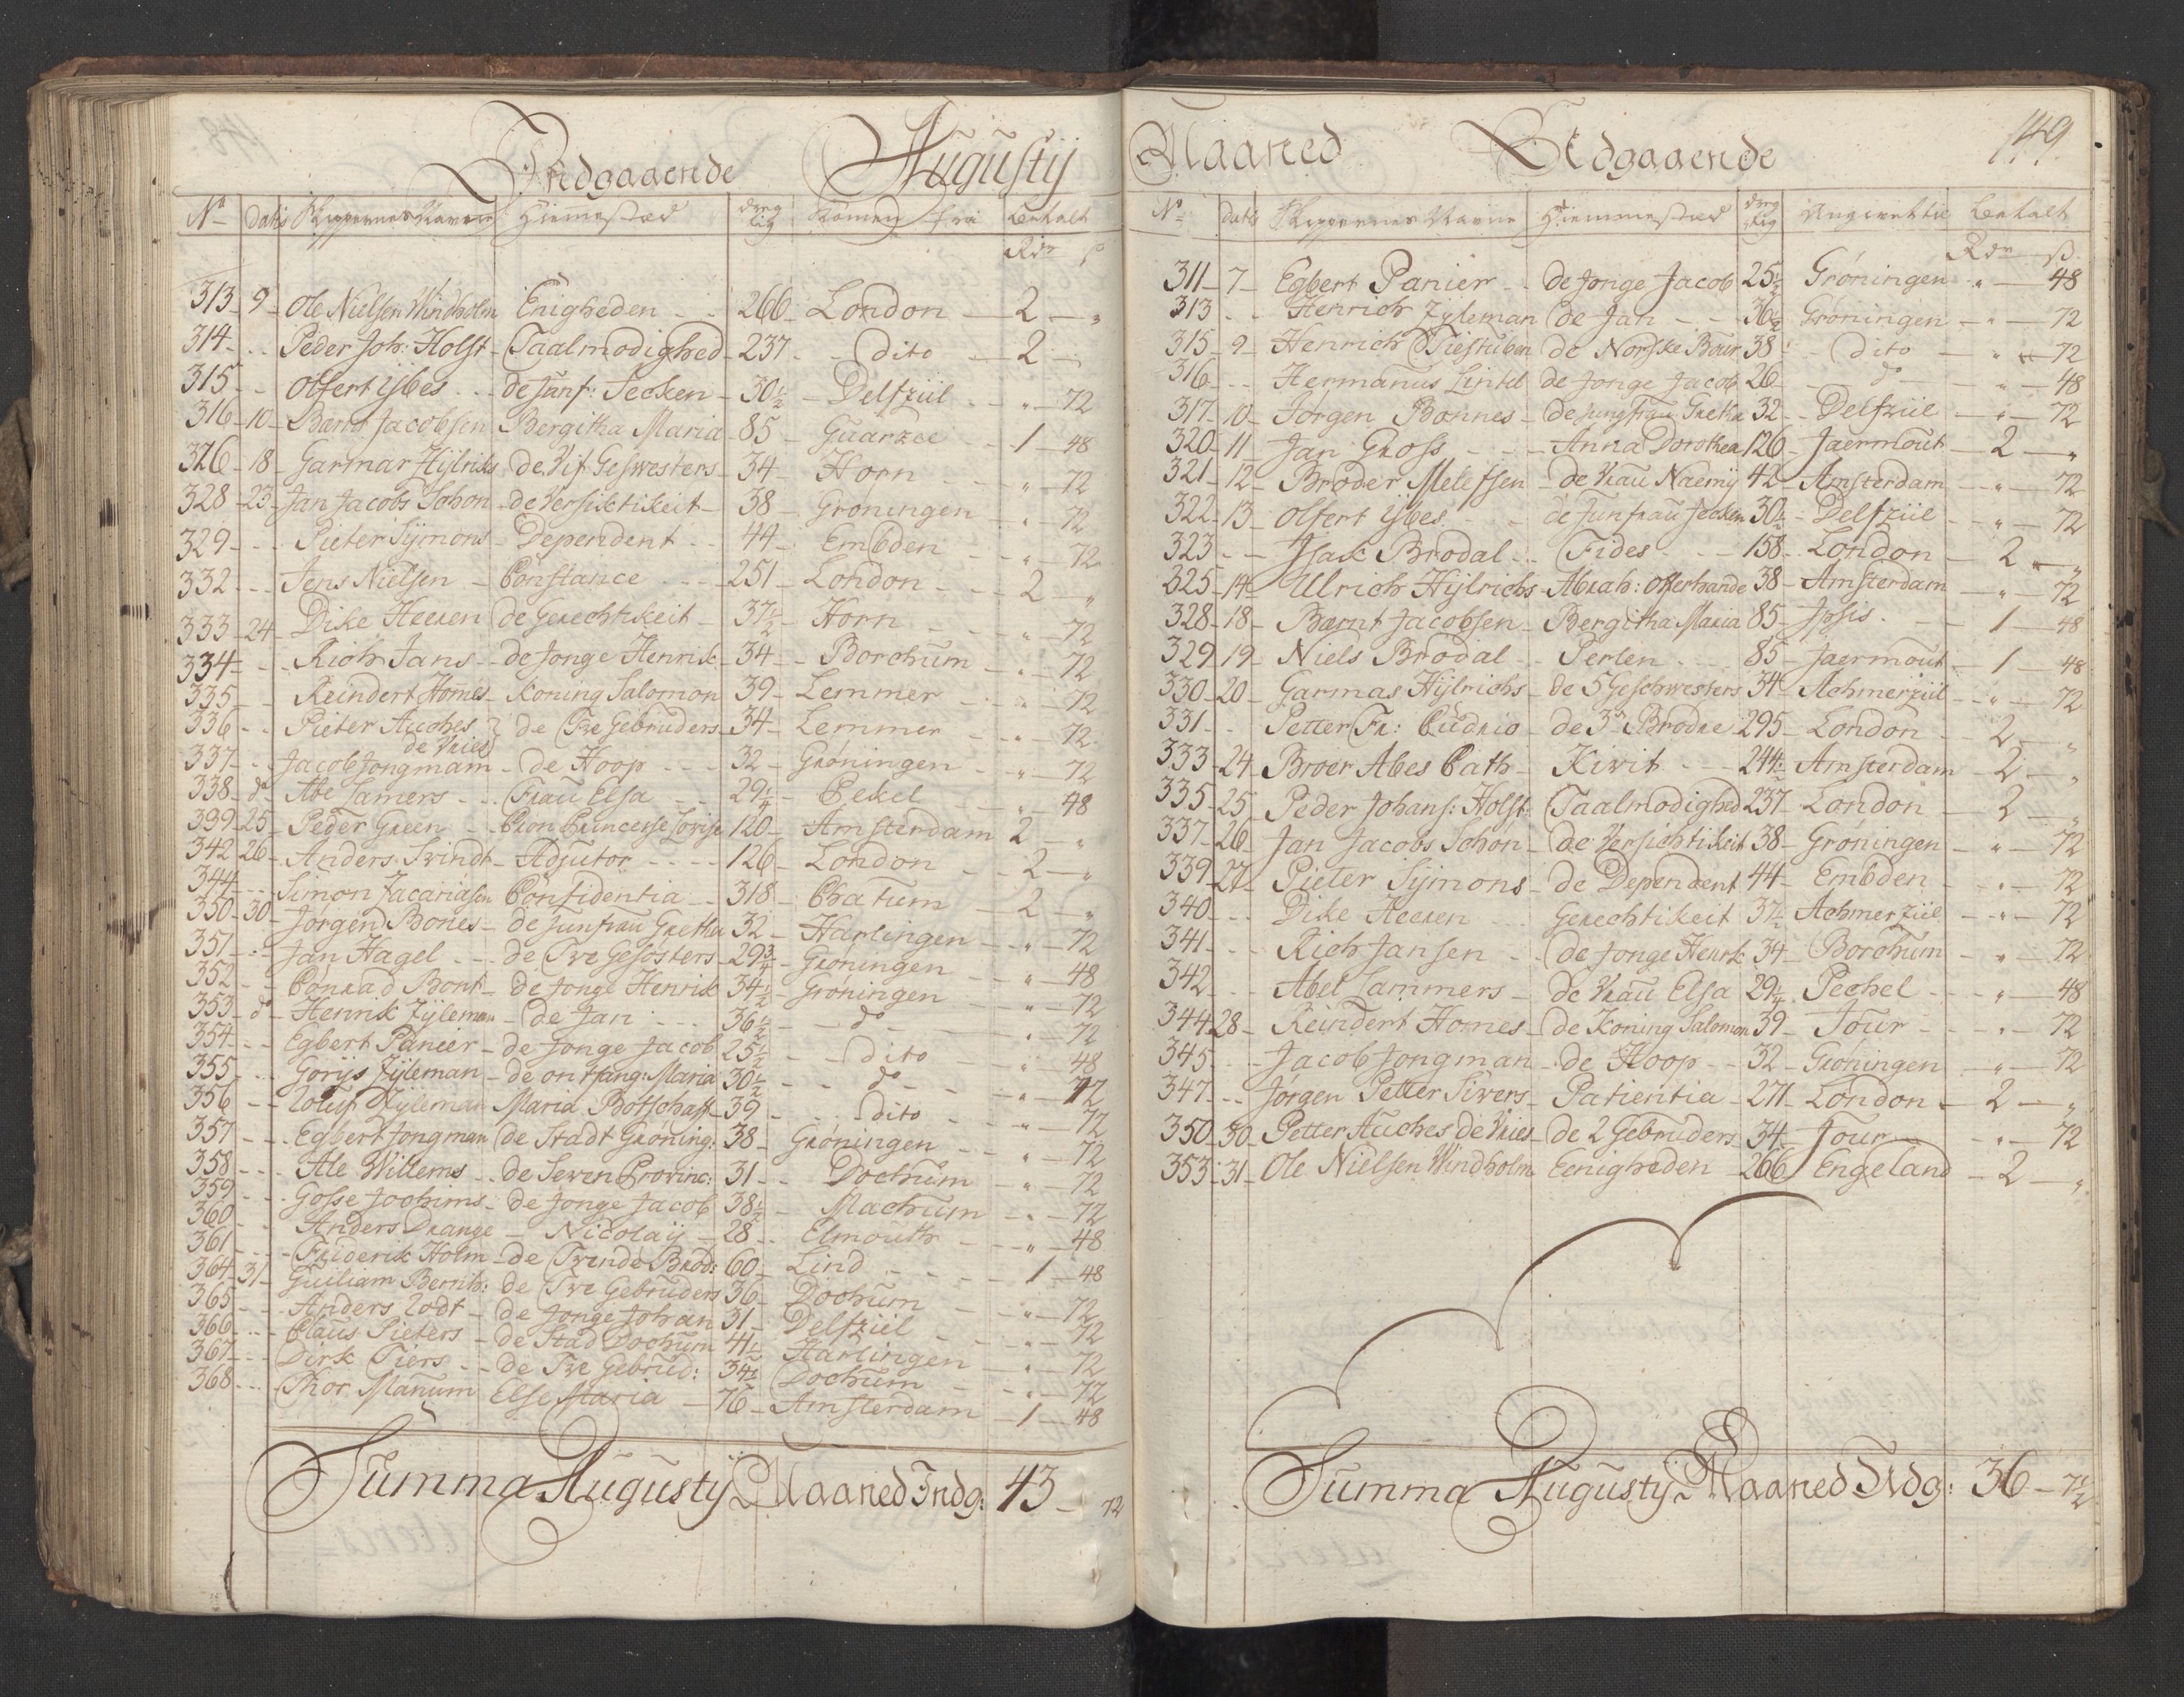 Indgaaende Augustij
No Datis Skippernes Navne Hiemmestæd Dreg tig Komen fra Betalt
Rdr ß
313 - 9 - Ole Nielsen Windholm Enigheden - - 266 - London - 2 - "
314 - - - Peder Joh: Holst - Taalmodighed - 237 - - dito - 2 - "
315 - - Olfert Ysbes - - de Junf: Secken - 30½ - Delfziil - " - 72
316 - 10 - Barnt Jacobsen Bergitha Maria - 85 - Guarzee - - 1 - 48
326 - 18 - Garmar Hijlrichs - de Vif Geswesters - 34 - Horn - - " - 72
328 - 23 - Jan Jacobs Schon - de Versiktikeit - 38 - Groningen - " - 72
329 - - - Pieter Sijmons - Dependent - - 44 - Embden - - " - 72
332 - - - Jens Nielsen - Constance - - - 251 - London - - - 2 - "
333 - 24 - Dike Heeren de Gerechtikeit - 37½ - Horn - - " - 72
334 - - - Rich Jans - - de Jonge Henrik - 34 - - Borchum - " - 72
335 - - Reindert Homes - Koning Salomon 39 - Lemmer - - " - 72
336 - - Pieter Auches de Vries de Twe Gebruders - 34 - Lemmer - - " - 72
337 - - Jacob Jongmam - de Hoop - - - 32 - Gröningen - " - 72
338 - do - Abe Lamers - - Frau Elsa - - 29¼ - Pekel - - " - 48
339 - 25 - Peder Green - Cron Princesse Lovise 120 - Amsterdam 2 - "
342 - 26 - Anders Svindt - Adjutor - - - - 126 - London - - 2 - "
344 - - - Simon Zacariasen Confidentia - - 318 - Chatum - 2 - "
350 - 30 - Jörgen Bones - de Junfrau Grethe 32 - Harlingen - " - 72
351 - - - Jan Hagel - - - de Twe Gesösters - 29¾ - Gröningen - " - 48
352 - - Conrad Bont - de Jonge Henrik 34½ - Gröningen - " - 72
353 - do - Henrik Zijleman - de Jan - - - 36½ - - do - - " - 72
354 - - - Egbert Panier - de Jonge Jacob 25½ - - dito - " - 48
355 - - - Gorijs Zijleman - de ontfang: Maria 30½ - - do - - " - 72
356 - - Zijleman Maria Botschaft - 39 - - dito - - " - 72
357 - - - Egbert Jongman de Stadt Gröning: 38 - Gröningen - - " - 72
358 - - - Ale Willems - - de Seven Provinc: 31 - - Dochum - " - 72
359 - - - Gosse Jochims - de Jonge Jacob 38½ - Machum - " - 72
360 - - Anders Drange - Nicolaij - 28 - - Elmouth - - " - 48
361 - - - Friderik Holm - de Tvende Brød: 60 - Lind - - - 1 - 48
364 - 31 - Guiliam Bernth: de Twe Gebruders 36 - Dochum - - " - 72
365 - - - Anders Zodt - de Jonge Johan 31 - Delfziil - - " - 72
366 - - - Claus Pieters - de Stad Dochum 41½ Harlingen - " - 72
367 - - - Dirk Tiers - - de Twe Gebrud: 34½ Dochum - - " - 72
368 - - - Thor Manum Else Maria - 76 - Amsterdam - 1 - 48
Summa Augustij Maaned Indg: 43 - 72
Maaned Udgaaende 149
No Datis Skippernes Navne Hiemmestæd Dreg tig Angiver til Betalt
Rdr ß
311 - 7 - Egbert Panier - - de Jonge Jacob 25½ Gröningen - " - 48
313 - - Henrich Zijleman de Jan - - 36½ Gröningen - " - 72
315 - 9 - Henrich Tiestuben de Norske Boer 38 - - dito - " - 72
316 - - - Hermanus Lintel de Jonge Jacob 26 - - do - - " - 48
317 - 10 - Jörgen Bonnes - de Jungfrau Gretha 32 - - Delfziil - " - 72
320 - 11 - Jan Gross - - - Anna Dorothea 126 - Jaermout - 2 - "
321 - 12 - Broder Melefsen - de Vrau Naemij 42 - Amsterdam - " - 72
322 - 13 - Olfert Ysbes - - de Junfrau Jecken 30½ - Delfziil - - " - 72
323 - - - Isak Brodal - - Fides - - - 158 - London - 2 - "
325 - 14 - Ulrich Hijlrichs - Abrah: Offerhande 38 - Amsterdam - " - 72
328 - 18 - Barnt Jacobsen - Bergitha Maria 85 - Ipsis - - - 1 - 48
329 - 19 - Niels Brodal - Perlen - - - 85 - Jaermout - 1 - 48
330 - 20 - Garmas Hijlrichs - de 5 Geschwesters 34 - Achmerziil - " - 72
331 - - Petter Fr: Cudrio - de 3 Brodre 295 - London - - 2 - "
333 - 24 - Broer Abes Cath - Kivit - - - 244½ Amsterdam - 2 - "
335 - 25 - Peder Johans: Holst: Taalmodighed 237 - London - 2 - "
337 - 26 - Jan Jacobs Schon - de Versichtikeit 38 - Gröningen - " - 72
339 - 27 - Pieter Sijmons - de Dependent 44 - Embden - - " - 72
340 - - - Dike Heeren - - Gerechtikeit 37½ Achmerziil - " - 72
341 - - - Rich Jansen - - de Jonge Henrik 34 - Borchum - " - 72
342 - - - Abel Lammers - de Vrau Elsa 29¼ Pechel - - " - 48
344 - 28 - Reindert Homes - de Koning Salomon 39 - Jour - - " - 72
345 - - - Jacob Jongman - de Hoop - - 32 - Gröningen - " - 72
347 - - - Jørgen Petter Sivers - Patientia - 271 - London - 2 - "
350 - 30 - Petter Auches de Vries - de 2 Gebruders 34 - Jour - - " - 72
353 - 31 - Ole Nielsen Windholm Eenigheden - 266 Engeland - 2 - "
Summa Augustij Maaned Udg: 36 - 7½